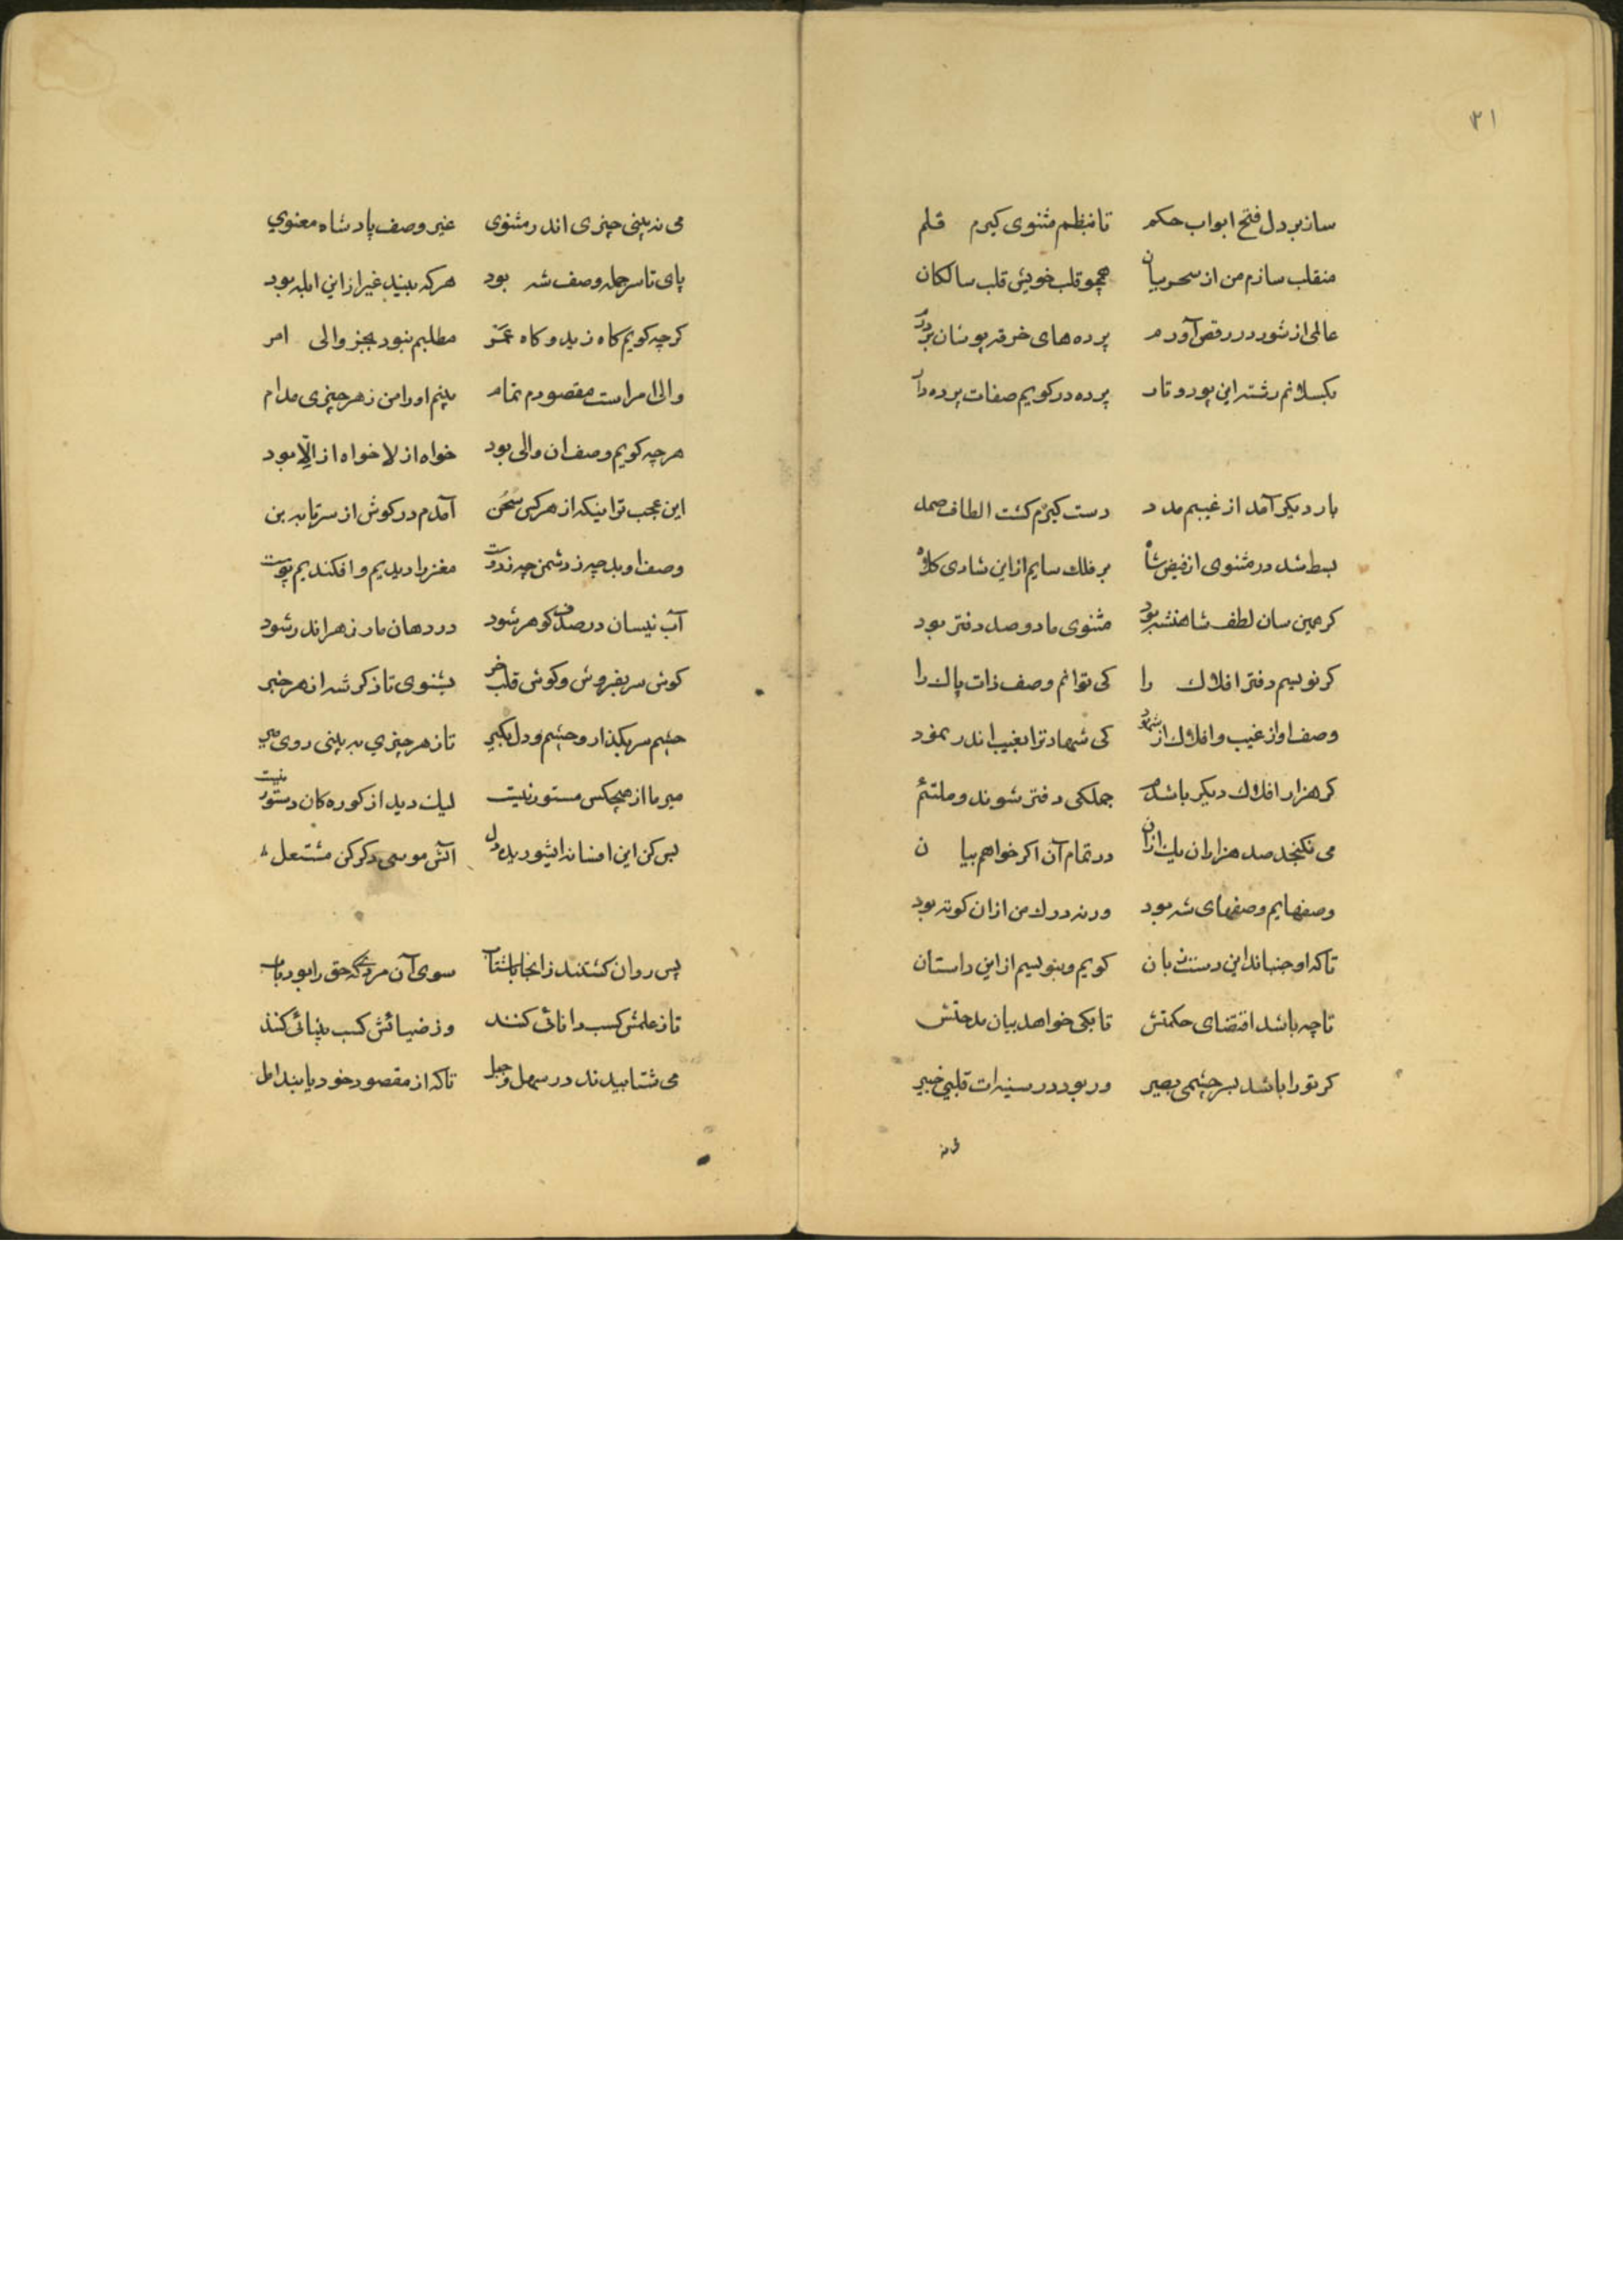 ۳۱
ساز بر دل فتح ابواب حکم تا بنظم مثنوی کیرم قلم
منقلب سازم من از سحر بیان همچو قلب خویش قلب سالکان
عالمی از شور در رقص آورم پرده های خرقه پوشان بردرم
بکسلانم رشته این پود و تار پرده در کویم صفات پرده دار
بار دیکر آمد از غیبم مدد دست کیرم کشت الطاف صمد
بسط شد در مثنوی از فیض شاه بر فلک سایم از این شادی کلاه
کر همین سان لطف شاهنشه بود مثنوی ما دو صد دفتر بود
کر نویسم دفتر افلاک را کی توانم وصف ذات پاک را
وصف او از غیب و افلاک از شهود کی شهادت را بغیب اندر نمود
کر هزار افلاک دیکر باشدم جملکی دفتر شوند و ملتئم
می نکنجد صد هزاران یک از آن در تمام آن اکر خواهم بیان
وصفهایم وصفهای شه بود ورنه درک من از ان کوته بود
تا که او جنباند این دست و زبان کویم و بنویسم از این داستان
تا چه باشد اقتضای حکمتش تا بکی خواهد بیان مدحتش
کر تو را باشد بسر چشمی بصیر ور بود در سینه ات قلبی خبیر
می نه بینی چیزی اندر مثنوی غیر وصف پادشاه معنوی
پای تا سر جمله وصف شه بود هر که بیند غیر از این ابله بود
کرچه کویم کاه زید و کاه عمر مطلبم نبود بجز والی امر
والی امر است مقصودم تمام بینم او را من ز هر چیزی مدام
هر چه کویم وصف ان والی بود خواه از لا خواه از الّا بود
این عجب تر اینکه از هر کس سخن آمدم در کوش از سر تا به بن
وصف او بد چه ز دشمن چه ز دوست مغز را دیدیم و افکندیم پوست
آب نیسان در صدف کوهر شود در دهان مار زهر اندر شود
کوش سر بفروش و کوش قلب خر بشنوی تا ذکر شه از هر خبر
چشم سر بکذار و چشم دل بکیر تا ز هر چیزی به بینی روی میر
میر ما از هیچکس مستور نیست لیک دید از کوره کان دستور نیست
بس کن این افسانه ایشوریده دل آتش موسی دکر کن مشتعل
پس روان کشتند زانجا باشتاب سوی آن مردیکه حق را بود باب
تا ز علمش کسب دانائی کنند وز ضیائش کسب بینائی کنند
می شتابیدند در سهل و جبل تا که از مقصود خود یابند امل